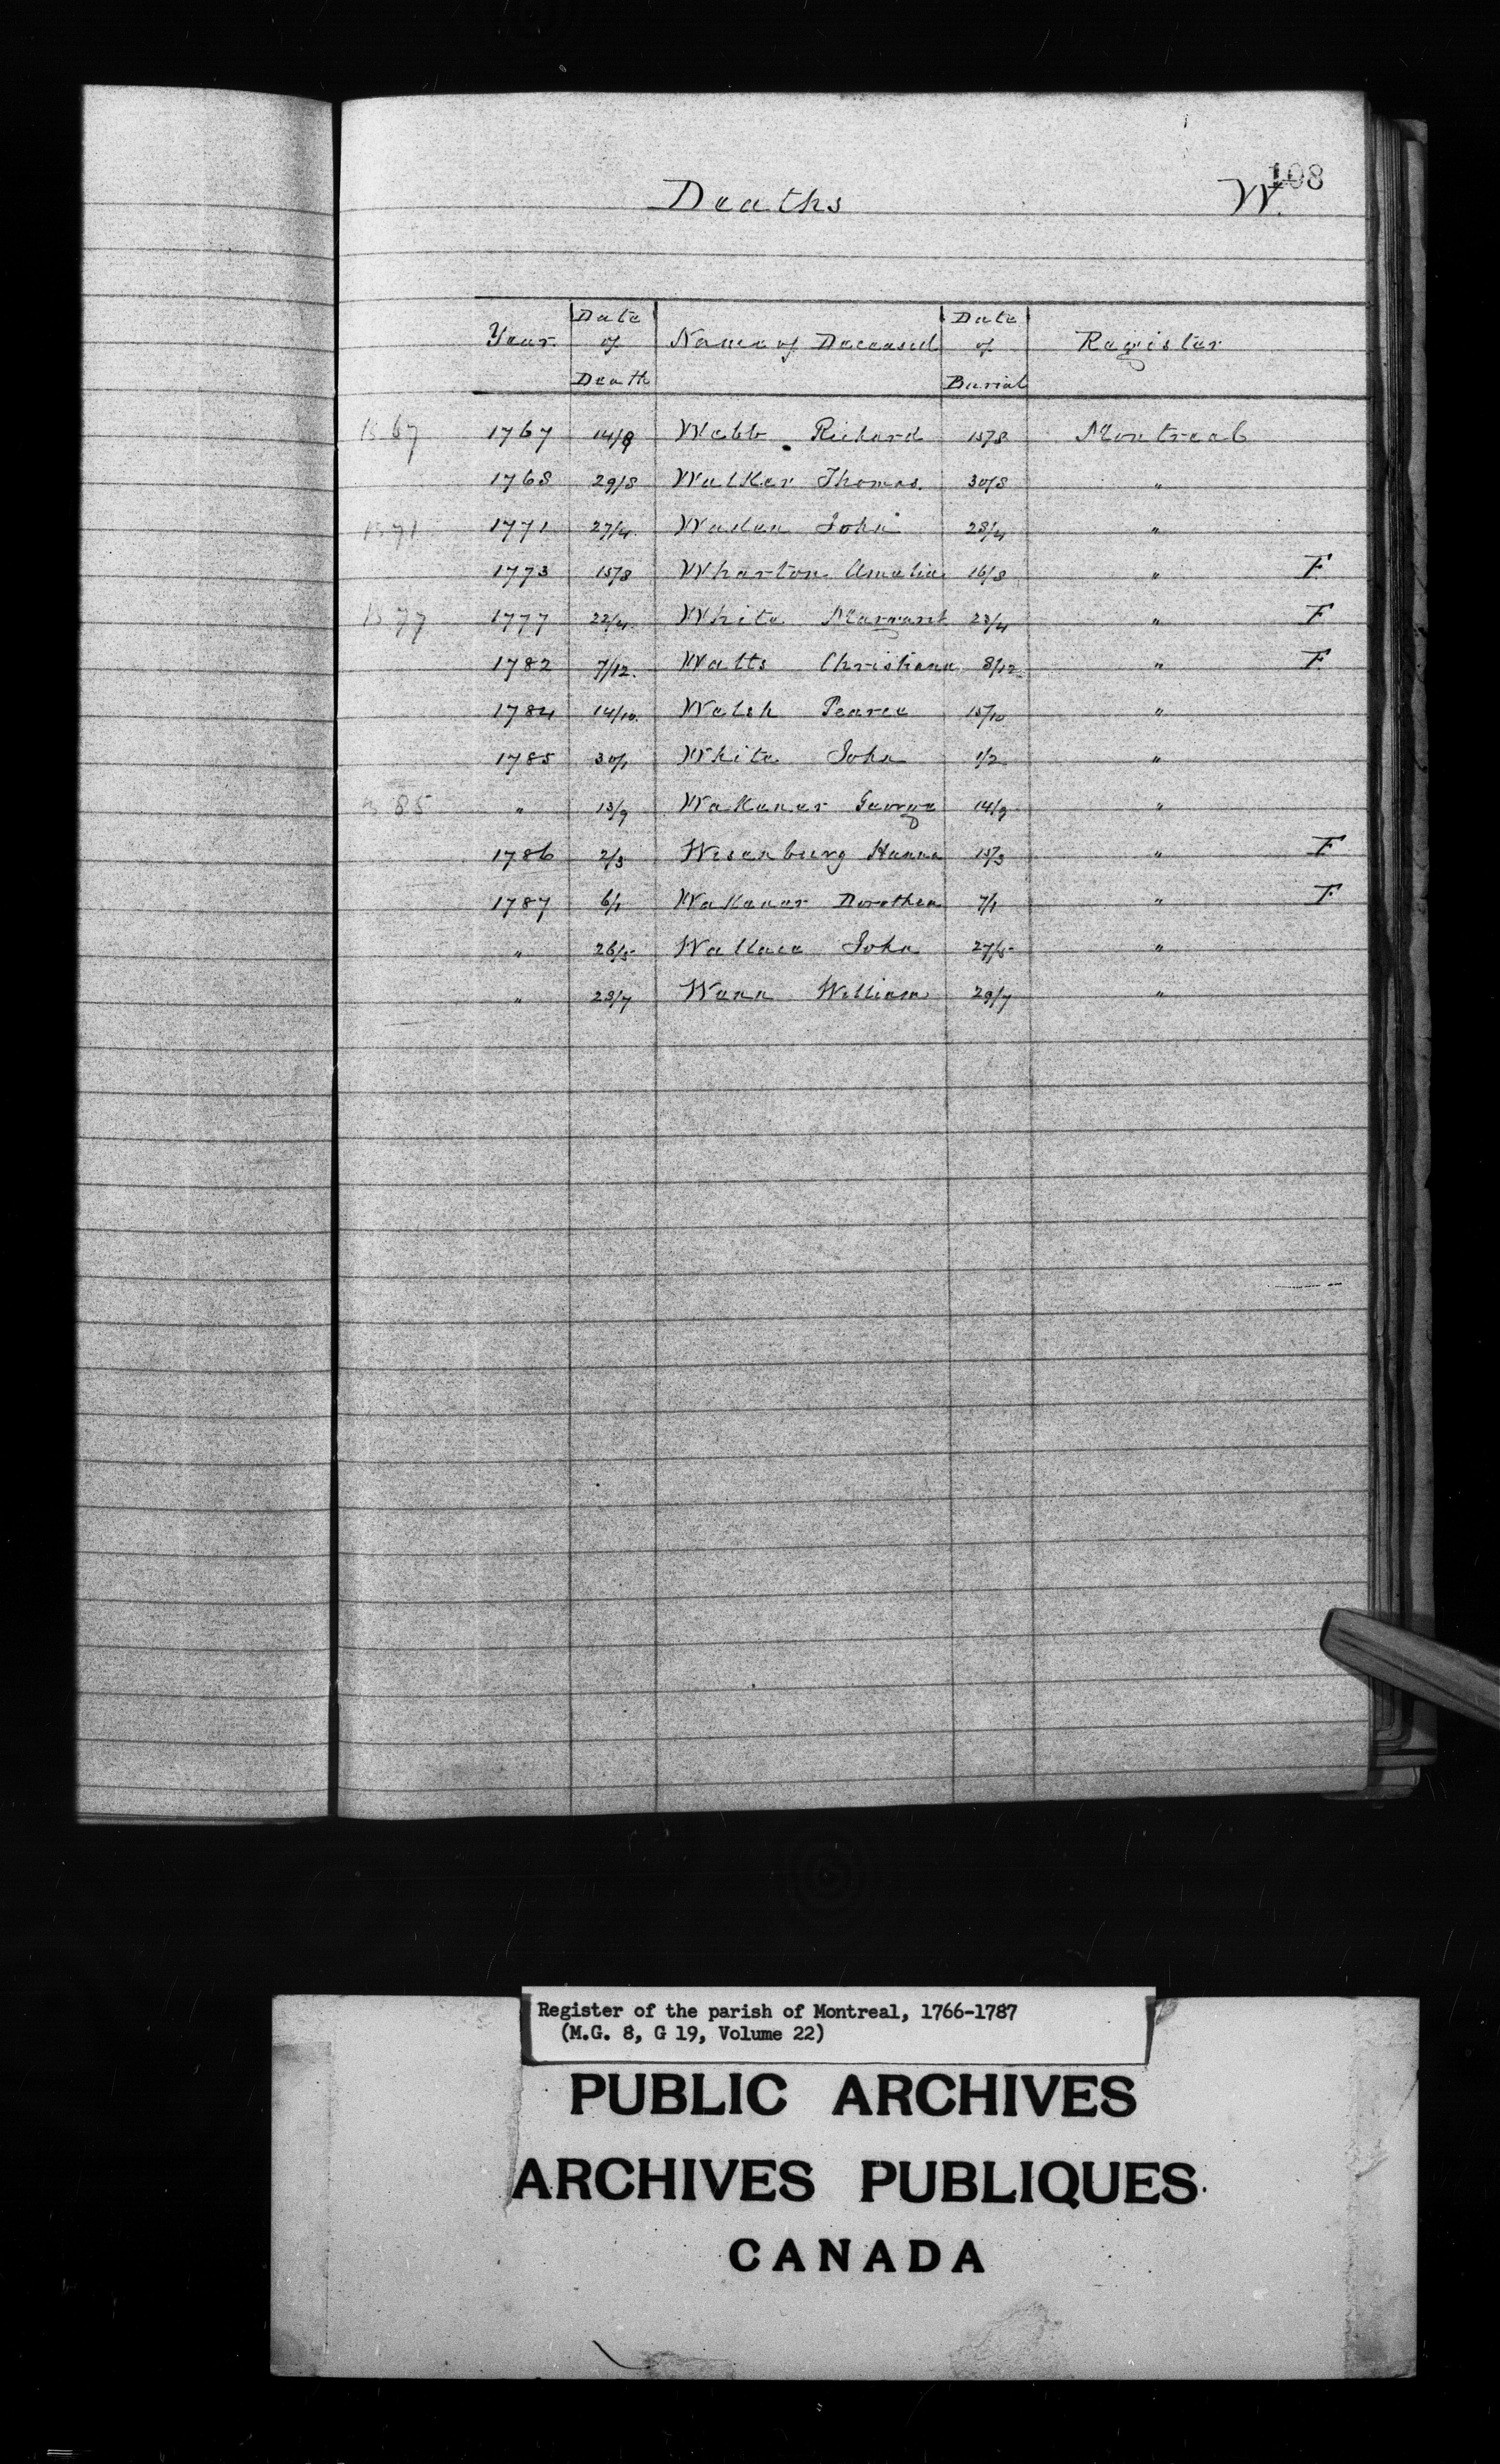 108
Deaths W.
Year Date of Death Name of Deceased Date of Burial Register
1767 14/8 Webb Richard 15/8 Montreal
1768 29/8 Walker Thomas. 30/8 "
1771 27/4 Waden John 28/4 "
1773 15/8 Wharton Amelia 16/8 " F
1777 22/4 White Margaret 23/4 " F
1782 7/12. Watts Christiana 8/12 " F
1784 14/10 Welsh Pearce 15/10 "
1785 30/1 White John 1/2 "
" 13/9 Wakenar George 14/9 "
1786 2/3 Wesenburg Hanna " F
1787 6/1 Wakenar Dorothea 7/1 " F
" 26/5 Wallace John 27/5 "
" 28/7 William 29/7 "
Register of the parish of Montreal, 1766-1787
(M.G. 8, G 19, Volume 22)
PUBLIC ARCHIVES
ARCHIVES PUBLIQUES
CANADA